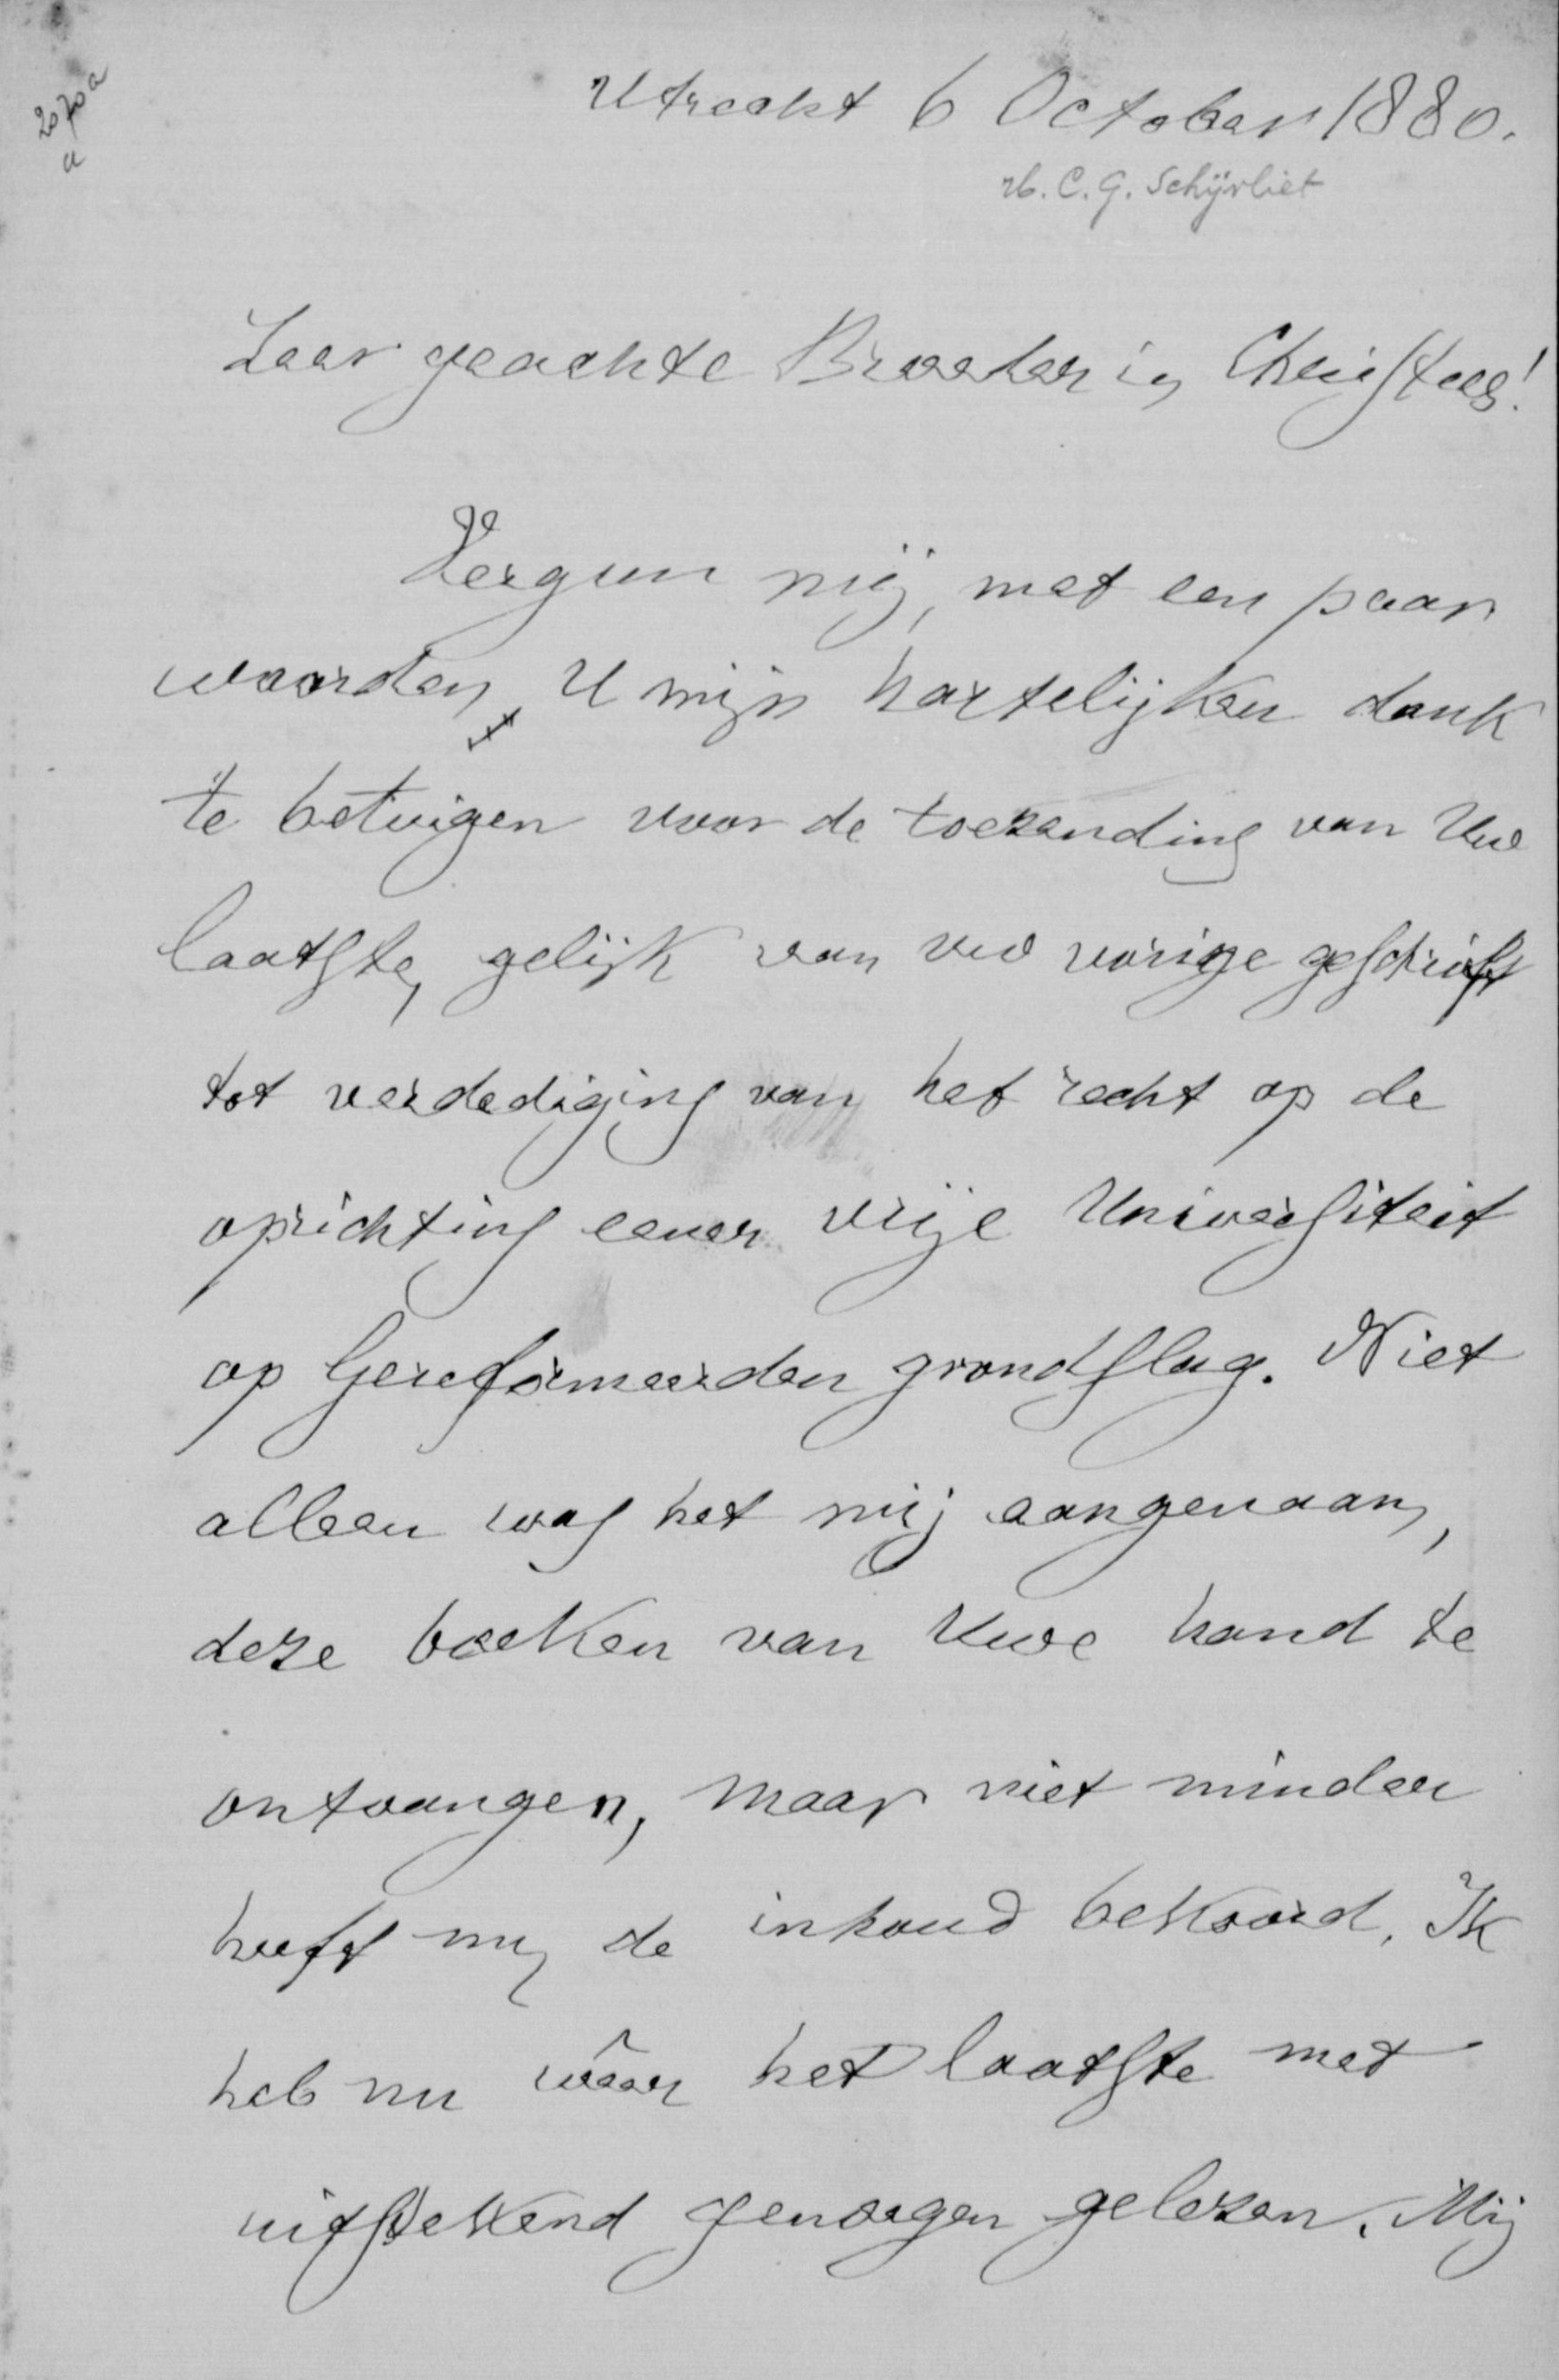 2070a
a
Utrecht 6 October 1880.
H. C. G. Schijvliet
Zeer geachte Broeder in Christus!
Vergun mij, met een paar
woorden, U mijn hartelijken dank
te betuigen voor de toezending van Uw
laatste, gelijk van uw vorige geschrift
tot verdediging van het recht op de
oprichting eener vrije Universiteit
op Gereformeerden grondslag. Niet
alleen was het mij aangenaam,
deze boeken van Uwe hand te
ontvangen, maar niet minder
heeft mij de inhoud bekoord. Ik
heb nu weer het laatste met
uitstekend genoegen gelezen. Mij